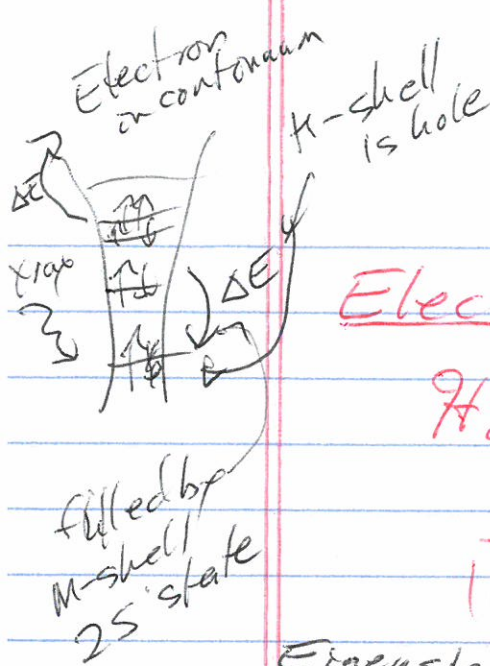 Electron
in continuum
K-shell
is hole
ΔE
xray
ΔE
Elec
H
filled by
M-shell
2S state
Eigenst